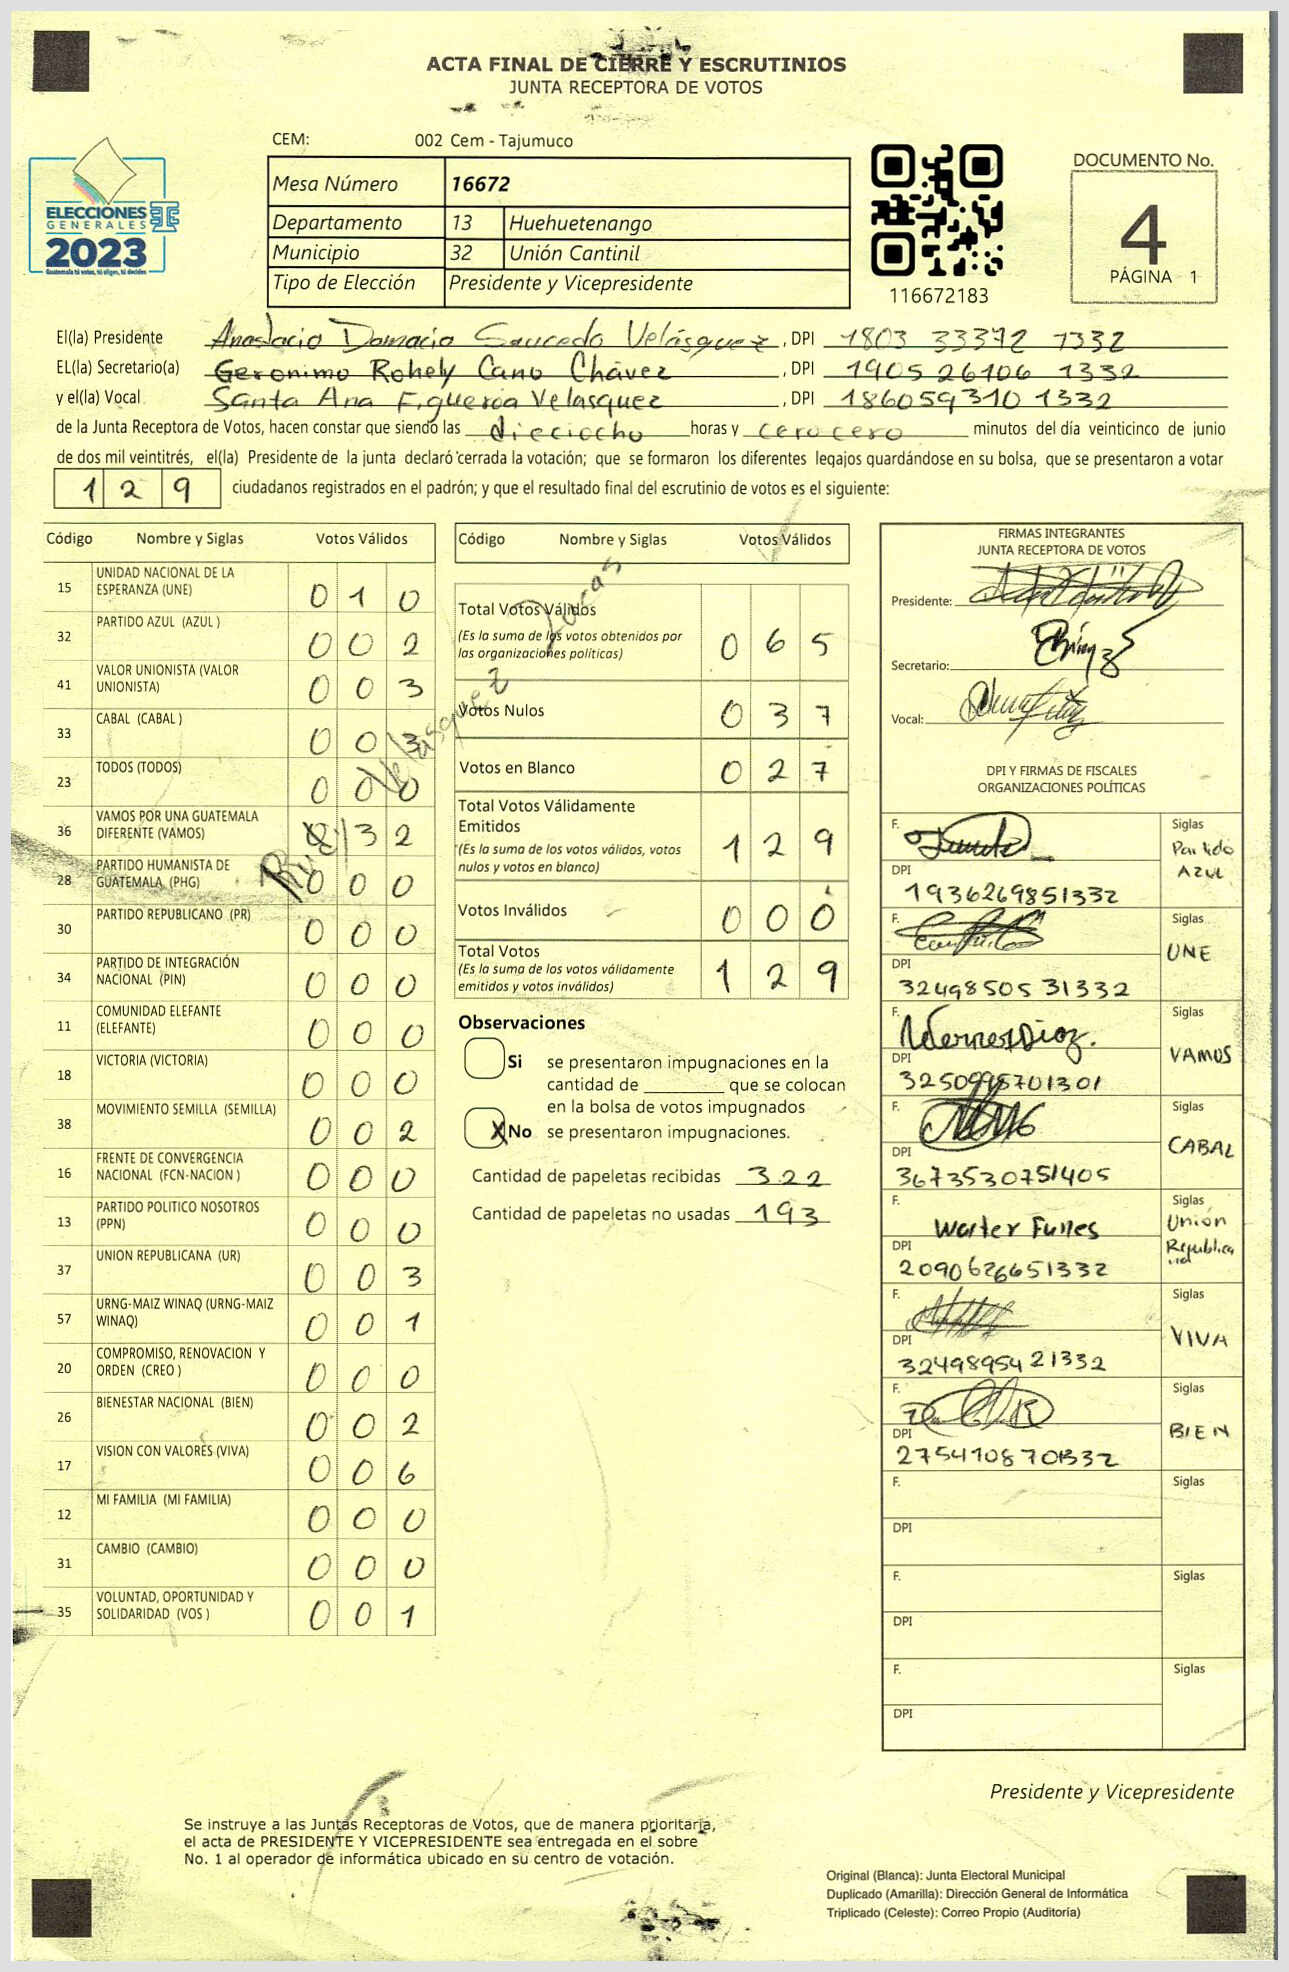 ACTA FINAL DE CIERRE Y ESCRUTINIOS
JUNTA RECEPTORA DE VOTOS
CEM: 002 Cem - Tajumuco
ELECCIONES
GENERALES
2023
Guatemala tú votas, tú eliges, tú decides
Mesa Número 16672
Departamento 13 Huehuetenango
Municipio 32 Unión Cantinil
Tipo de Elección Presidente y Vicepresidente
116672183
DOCUMENTO No.
4
PÁGINA 1
El(la) Presidente Anastacio Damacio Saucedo Velásquez, DPI 1803 33372 1332
EL(la) Secretario(a) Geronimo Rohely Cano Chávez, DPI 1905 26106 1332
y el(la) Vocal Santa Ana Figueroa Velasquez, DPI 186059310 1332
de la Junta Receptora de Votos, hacen constar que siendo las dieciocho horas y cero cero minutos del día veinticinco de junio
de dos mil veintitrés, el(la) Presidente de la junta declaró cerrada la votación; que se formaron los diferentes legajos guardándose en su bolsa, que se presentaron a votar
1 2 9 ciudadanos registrados en el padrón; y que el resultado final del escrutinio de votos es el siguiente:
Código Nombre y Siglas Votos Válidos
15 UNIDAD NACIONAL DE LA
ESPERANZA (UNE) 0 1 0
32 PARTIDO AZUL (AZUL ) 0 0 2
41 VALOR UNIONISTA (VALOR
UNIONISTA) 0 0 3
33 CABAL (CABAL ) 0 0 3
23 TODOS (TODOS) 0 0 0
36 VAMOS POR UNA GUATEMALA
DIFERENTE (VAMOS) 0 3 2
28 PARTIDO HUMANISTA DE
GUATEMALA (PHG) 0 0 0
30 PARTIDO REPUBLICANO (PR) 0 0 0
34 PARTIDO DE INTEGRACIÓN
NACIONAL (PIN) 0 0 0
11 COMUNIDAD ELEFANTE
(ELEFANTE) 0 0 0
18 VICTORIA (VICTORIA) 0 0 0
38 MOVIMIENTO SEMILLA (SEMILLA) 0 0 2
16 FRENTE DE CONVERGENCIA
NACIONAL (FCN-NACION ) 0 0 0
13 PARTIDO POLITICO NOSOTROS
(PPN) 0 0 0
37 UNION REPUBLICANA (UR) 0 0 3
57 URNG-MAIZ WINAQ (URNG-MAIZ
WINAQ) 0 0 1
20 COMPROMISO, RENOVACION Y
ORDEN (CREO ) 0 0 0
26 BIENESTAR NACIONAL (BIEN) 0 0 2
17 VISION CON VALORES (VIVA) 0 0 6
12 MI FAMILIA (MI FAMILIA) 0 0 0
31 CAMBIO (CAMBIO) 0 0 0
35 VOLUNTAD, OPORTUNIDAD Y
SOLIDARIDAD (VOS ) 0 0 1
Velasquez
Código Nombre y Siglas Votos Válidos
Total Votos Válidos
(Es la suma de los votos obtenidos por
las organizaciones políticas) 0 6 5
Votos Nulos 0 3 7
Votos en Blanco 0 2 7
Total Votos Válidamente
Emitidos
(Es la suma de los votos válidos, votos
nulos y votos en blanco) 1 2 9
Votos Inválidos 0 0 0
Total Votos
(Es la suma de los votos válidamente
emitidos y votos inválidos) 1 2 9
Observaciones
Si se presentaron impugnaciones en la
cantidad de ________ que se colocan
en la bolsa de votos impugnados
X No se presentaron impugnaciones.
Cantidad de papeletas recibidas 322
Cantidad de papeletas no usadas 193
FIRMAS INTEGRANTES
JUNTA RECEPTORA DE VOTOS
Presidente:
Secretario:
Vocal:
DPI Y FIRMAS DE FISCALES
ORGANIZACIONES POLÍTICAS
F. Siglas
Partido
AZUL
DPI
1936269851332
F. Siglas
UNE
DPI
3249850531332
F. Siglas
VAMOS
DPI
3250998701301
F. Siglas
CABAL
DPI
3673530751405
F. Walter Funes Siglas
Unión
Republica
na
DPI
2090626651332
F. Siglas
VIVA
DPI
3249895421332
F. Siglas
BIEN
DPI
F. Siglas
DPI
F. Siglas
DPI
F. Siglas
DPI
Presidente y Vicepresidente
Se instruye a las Juntas Receptoras de Votos, que de manera prioritaria,
el acta de PRESIDENTE Y VICEPRESIDENTE sea entregada en el sobre
No. 1 al operador de informática ubicado en su centro de votación.
Original (Blanca): Junta Electoral Municipal
Duplicado (Amarilla): Dirección General de Informática
Triplicado (Celeste): Correo Propio (Auditoría)